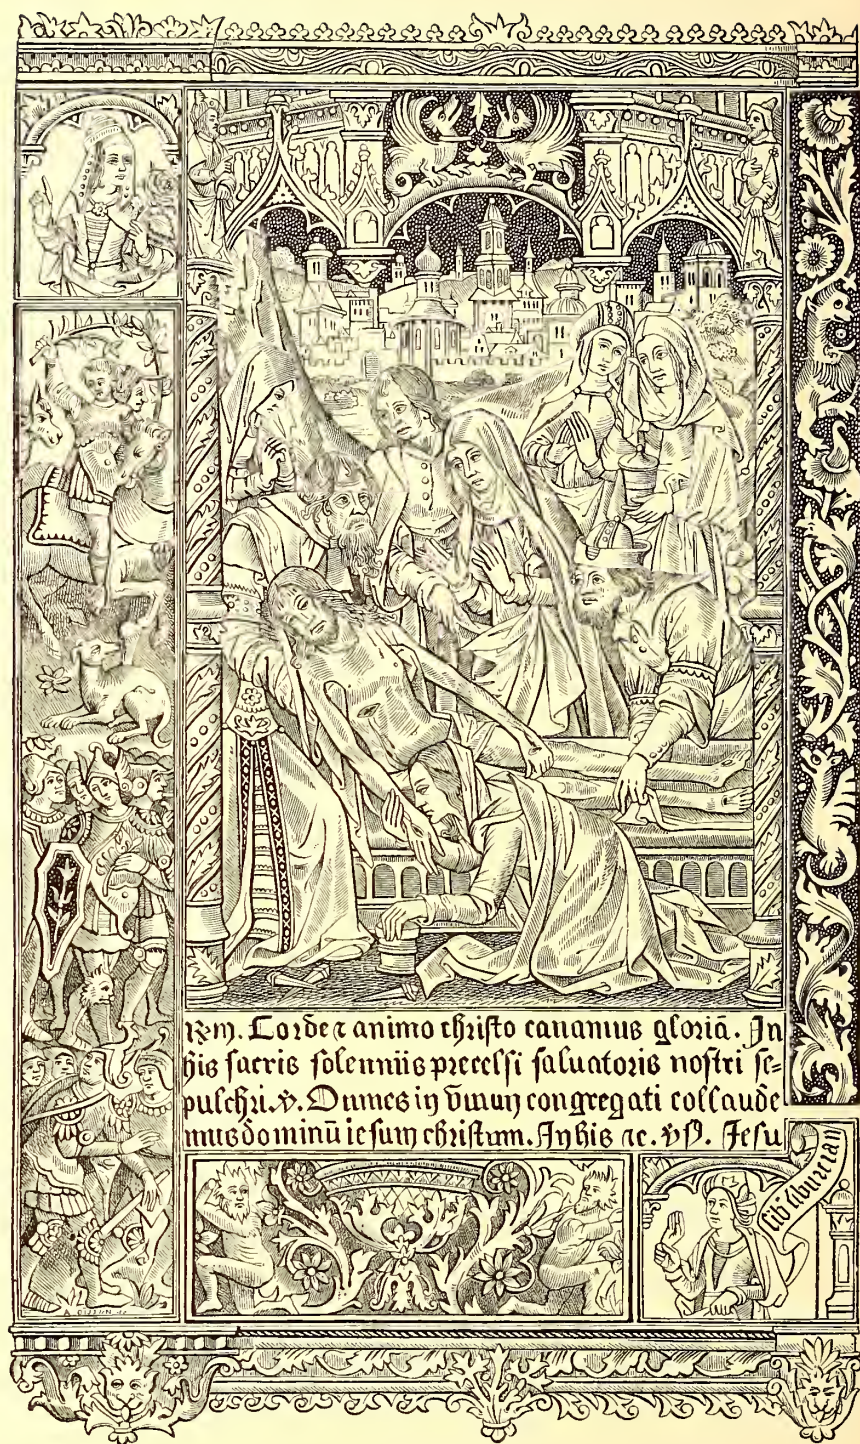 Corde ⁊ animo christo canamus gloriā. In
his sacris solenniis precelsi saluatoris nostri se=
pulchri. ꝟ. Omnes in vnum congregati collaude
mus dominū iesum christum. In his ⁊c. Jesu
sib'